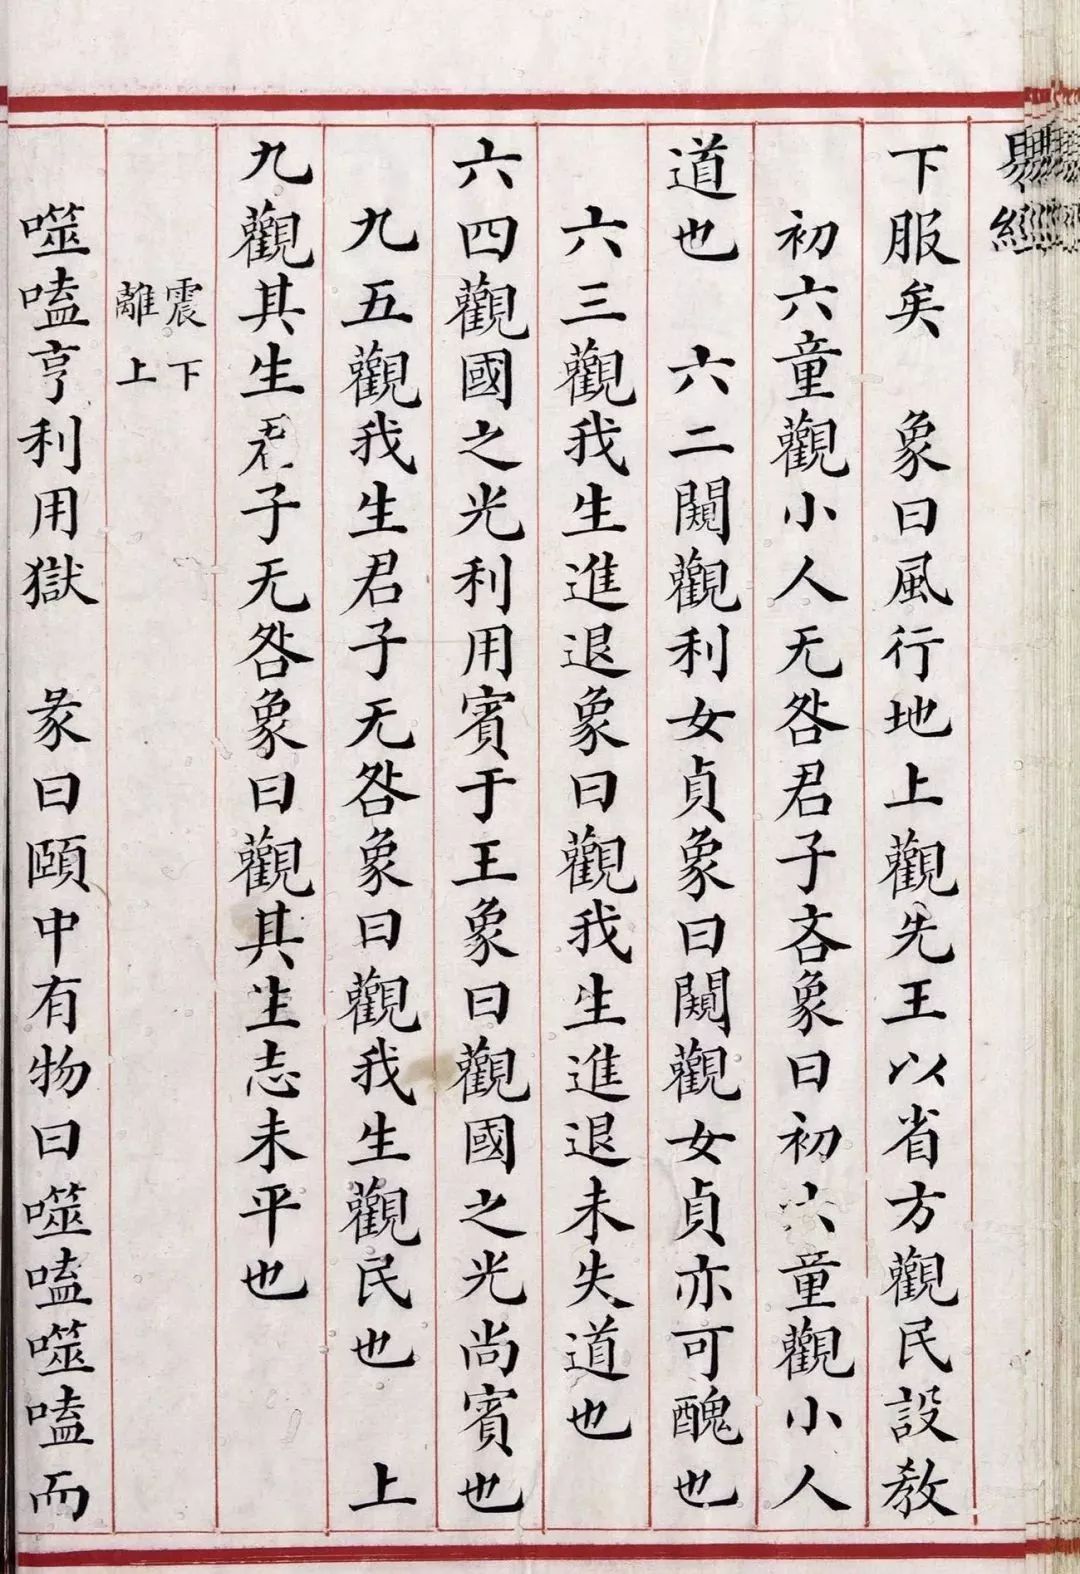 易經
下服矣　象曰風行地上觀先王以省方觀民設教
初六童觀小人无咎君子吝象曰初六童觀小人
道也　六二闚觀利女貞象曰闚觀女貞亦可醜也
六三觀我生進退象曰觀我生進退未失道也
六四觀國之光利用賓于王象曰觀國之光尚賓也
九五觀我生君子无咎象曰觀我生觀民也　上
九觀其生君子无咎象曰觀其生志未平也
震下
離上
噬嗑亨利用獄　彖曰頤中有物曰噬嗑噬嗑而